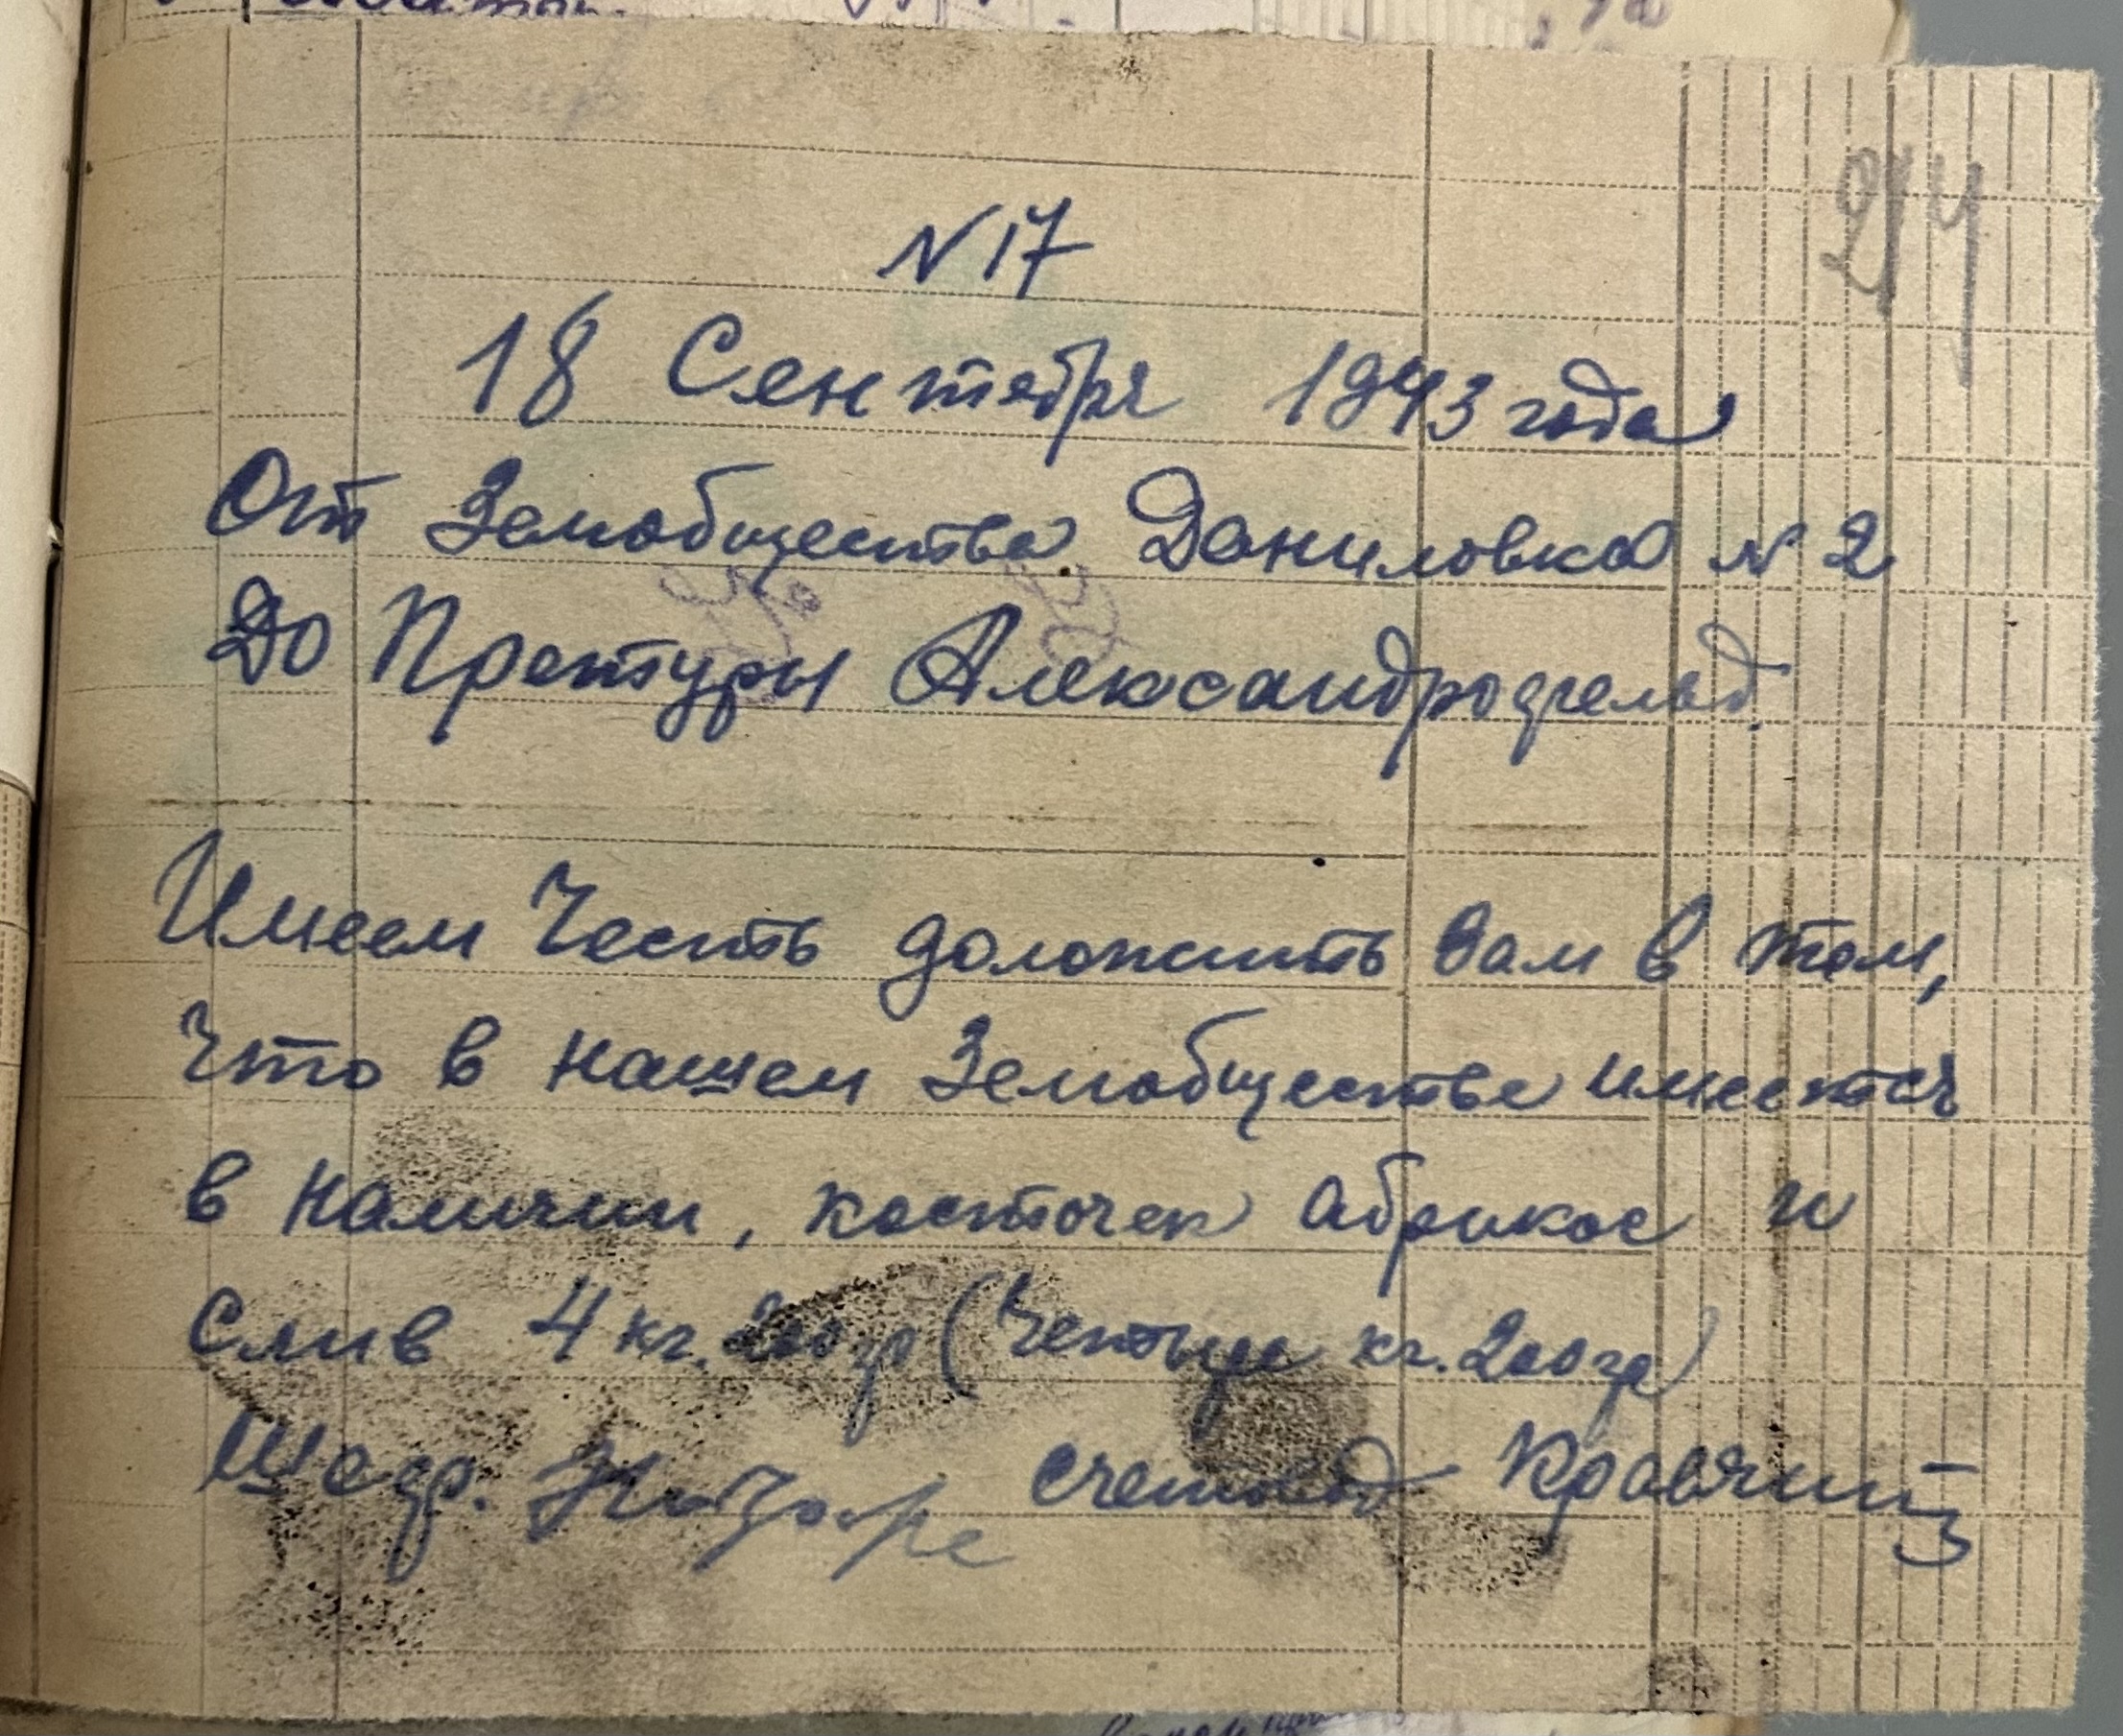 274
N 17
18 Сентября 1943 года
От Земобщества. Даниловка N 2
До Претуры Александрофельд.
Имеем Честь доложить Вам в том,
что в нашем Земобществе имеется
в наличии, косточек абрикос и
слив 4 кг. 200 гр (Четыре кг. 200 гр)
Шеф. счетовод Кравчий